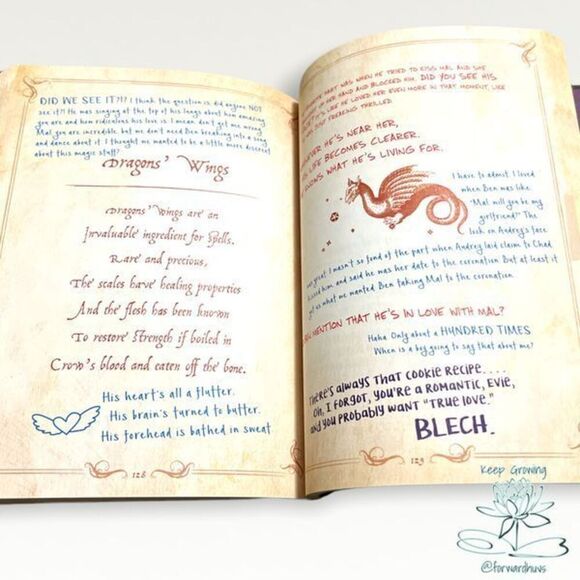 DID WE SEE IT?!? I think the question is did anyone NOT
see it?! He was singing at the top of his lungs about how amazing
you are and how ridiculous his love is. I mean don't get me wrong
Mal you are incredible, but we don't need Ben breaking into a song
and dance about it. I thought we wanted to be a little more discreet
about this magic stuff?
Dragons' Wings
Dragons' wings are an
Invaluable ingredient for spells.
Rare and precious,
The scales have healing properties
And the flesh has been known
To restore strength if boiled in
Crow's blood and eaten off the bone.
His heart's all a flutter.
His brain's turned to butter.
His forehead is bathed in sweat
128
PART WAS WHEN HE TRIED TO KISS MAL AND SHE
HER HAND AND BLOCKED HIM. DID YOU SEE HIS
IT'S LIKE HE LOVED HER EVEN MORE IN THAT MOMENT. LIKE
FREAKING THRILLED.
HE'S NEAR HER,
LIFE BECOMES CLEARER.
KNOWS WHAT HE'S LIVING FOR.
I have to admit I loved
when Ben was like
"Mal will you be my
girlfriend?" The
look on Audrey's face
was great. I wasn't so fond of the part when Audrey laid claim to Chad
kissed him and said he was her date to the coronation But at least it
got us what we wanted Ben taking Mal to the coronation
MENTION THAT HE'S IN LOVE WITH MAL?
Haha Only about a HUNDRED TIMES
When is a boy going to say that about me?
There's always that cookie recipe....
Oh, I forgot, you're a romantic, Evie,
and you probably want "true love."
BLECH.
129
Keep Growing
@forwardhuvs